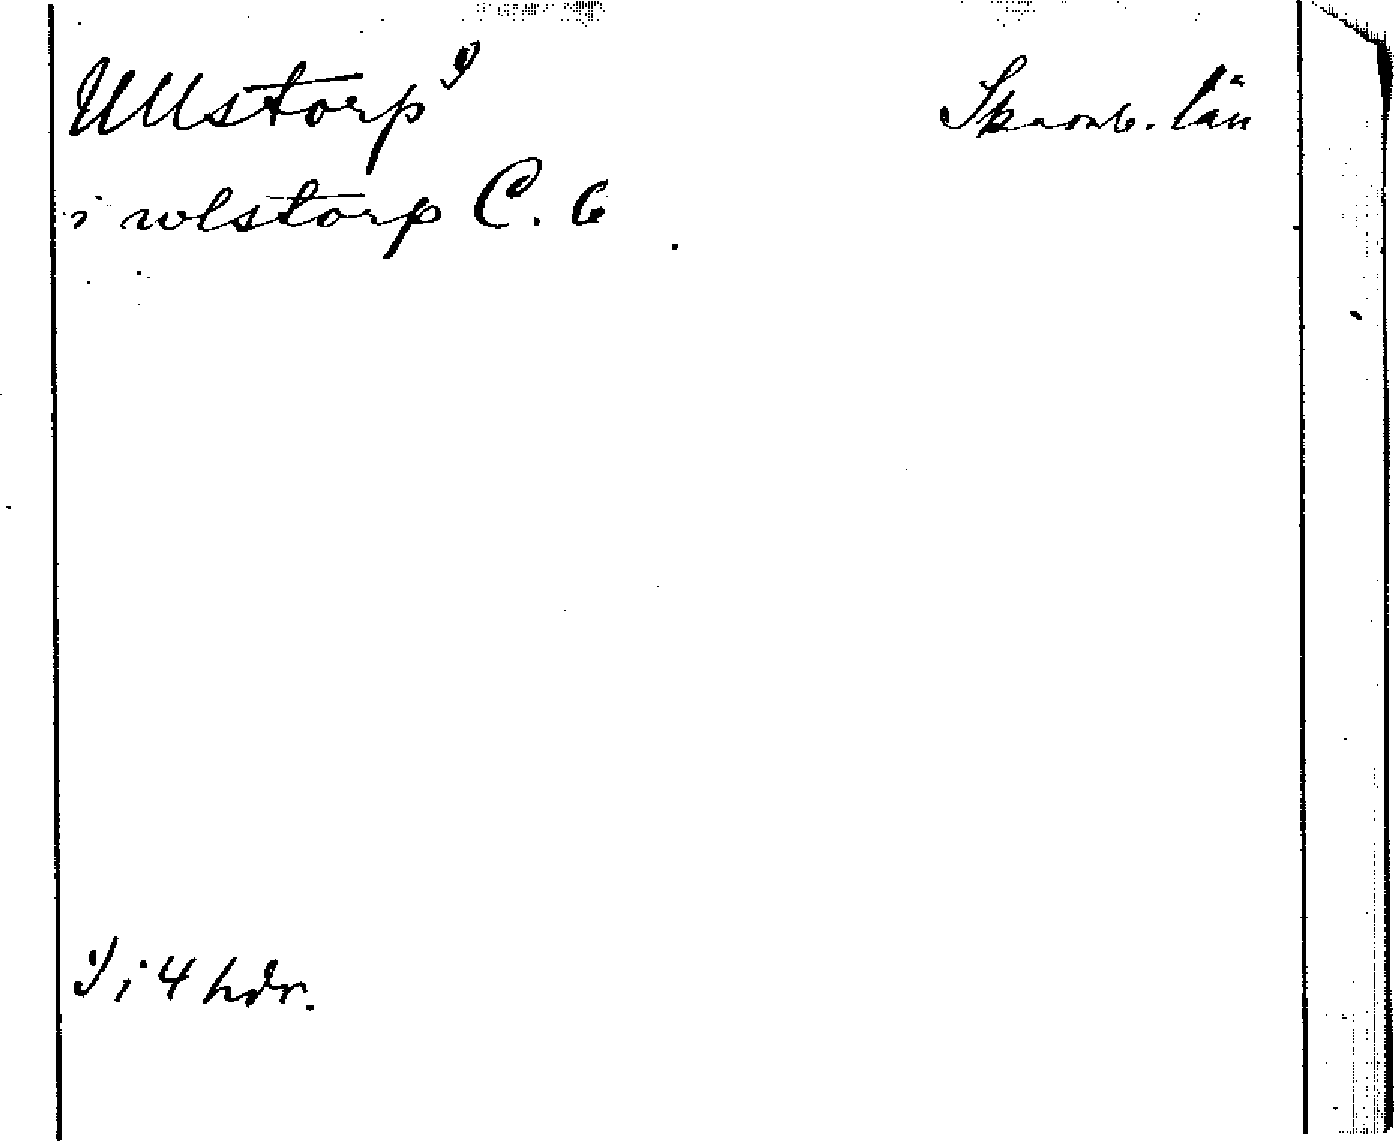 Ullstorp ¹) Skarab. län
i wlstorp C. 6
¹) i 4 hdr.